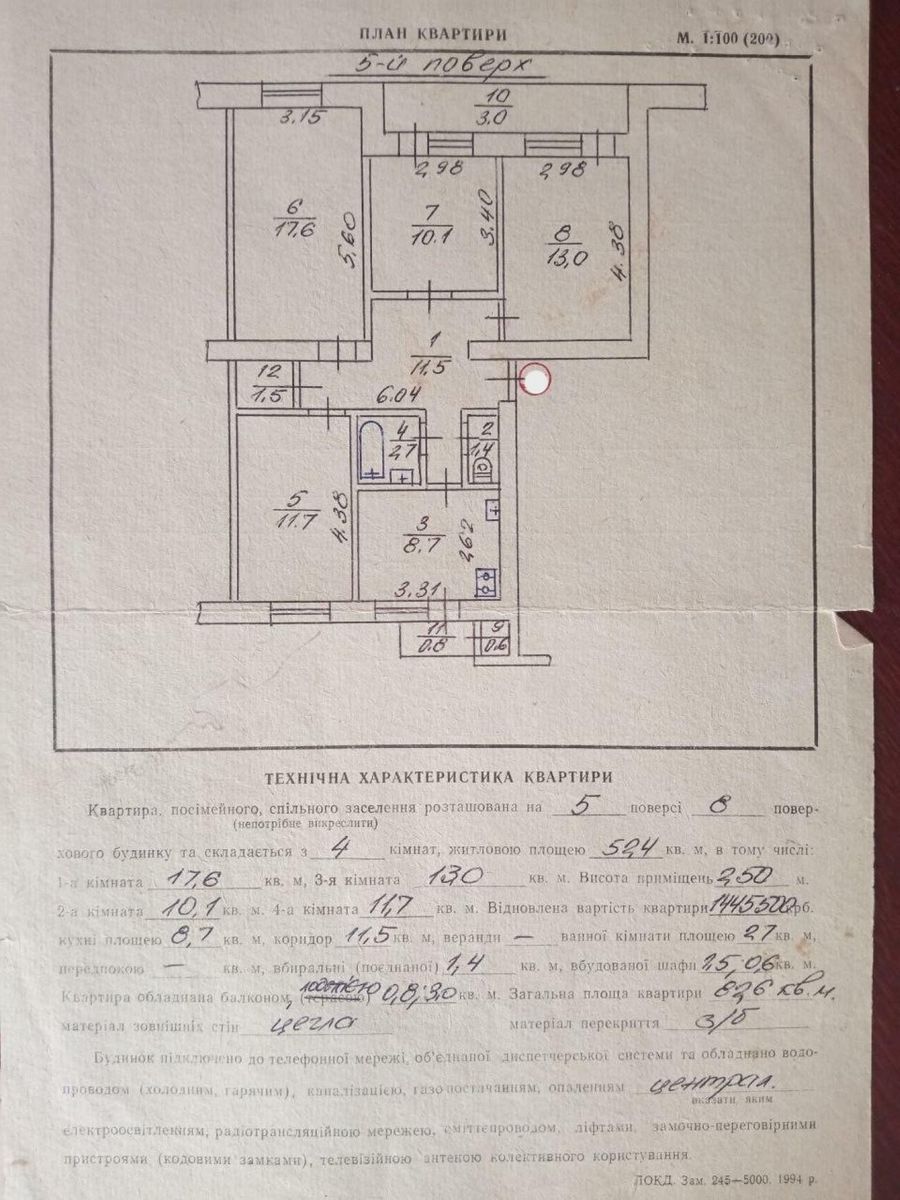 ПЛАН КВАРТИРИ
М. 1:100 (200)
5-й поверх
3.15
10
3.0
2,98
2,98
6
17.6
5,60
7
10.1
3.40
8
13,0
4.38
1
11.5
6.04
12
1.5
4
2,7
2
1,4
5
11.7
4.38
3
8.7
2,62
3.31
11
0.8
9
0.6
ТЕХНІЧНА ХАРАКТЕРИСТИКА КВАРТИРИ
Квартира, посімейного, спільного заселення розташована на 5 поверсі 8 повер-
(непотрібне викреслити)
хового будинку та складається з 4 кімнат, житловою площею 52,4 кв. м, в тому числі:
1-а кімната 17,6 кв. м, 3-я кімната 13,0 кв. м. Висота приміщень 2,50 м.
2-а кімната 10,1 кв. м. 4-а кімната 11,7 кв. м. Відновлена вартість квартири 1445500 крб.
кухні площею 8,7 кв. м, коридор 11,5 кв. м, веранди — ванної кімнати площею 2,7 кв. м,
передпокою — кв. м, вбиральні (поєднаної) 1,4 кв. м, вбудованої шафи 1,5, 0,6 кв. м.
лоджією
Квартира обладнана балконом, (терасою) 0,8; 3.0 кв. м. Загальна площа квартири 82,6 кв. м.
матеріал зовнішніх стін цегла матеріал перекриття з/б
Будинок підключено до телефонної мережі, об'єднаної диспетчерської системи та обладнано водо-
проводом (холодним, гарячим), каналізацією, газопостачанням, опаленням централ.
вказати, яким
електроосвітленням, радіотрансляційною мережею, сміттєпроводом, ліфтами, замочно-переговірними
пристроями (кодовими замками), телевізійною антеною колективного користування.
ЛОКД. Зам. 245—5000. 1994 р.